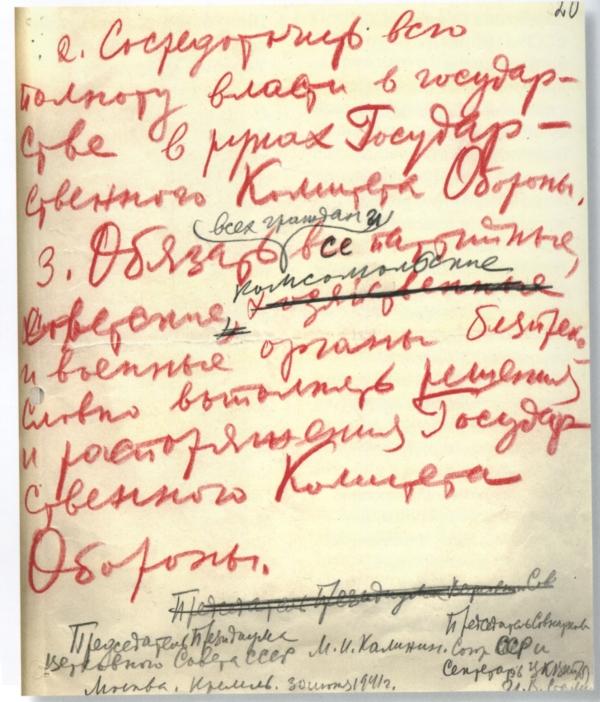 20
2. Сосредоточить всю
полноту власти в государ-
стве в руках Государ-
ственного Комитета Обороны.
всех граждан и
3. Обязать все партийные,
комсомольские
советские, хозяйственные
и военные органы беспреко-
словно выполнять решения
и распоряжения Государ-
ственного Комитета
Обороны.
Председатель Президиума Верховн Сов
Председатель Президиума
Верховного Совета СССР М. И. Калинин.
Председатель Совнаркома
Союза ССР и
Секретарь ЦК ВКП(б)
И. В. Сталин
Москва. Кремль. 30 июня 1941 г.